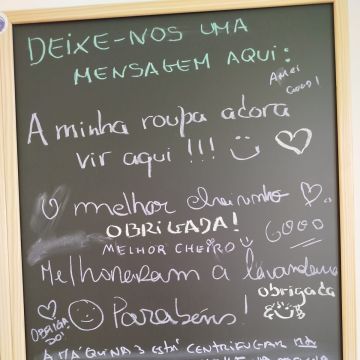 DEIXE-NOS UMA
MENSAGEM AQUI:
Amei
A minha roupa adora
vir aqui !!!
O melhor cheirinho
OBRIGADA!
MELHOR CHEIRO
Melhoneram a lavandaria
obrigada
OBRIGADO!
Parabéns!
A MÁQUINA 3 ESTÁ CENTRIFUGAR